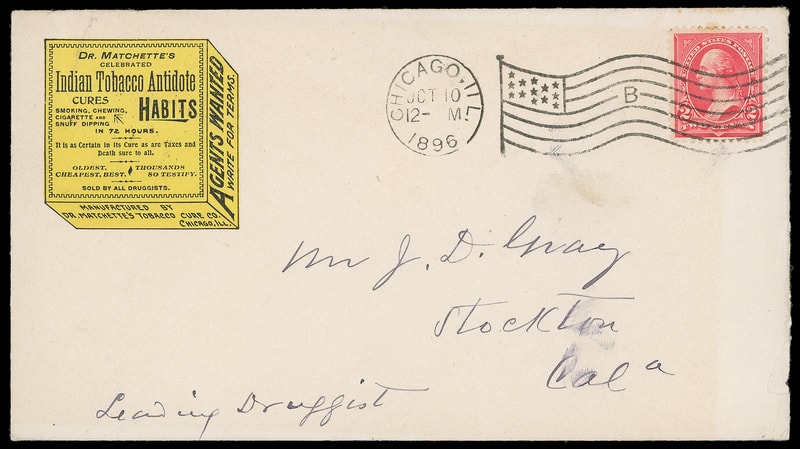 DR. MATCHETTE'S
CELEBRATED
Indian Tobacco Antidote
CURES
SMOKING, CHEWING,
CIGARETTE AND
SNUFF DIPPING
HABITS
IN 72 HOURS.
It is as Certain in its Cure as are Taxes and
Death sure to all.
OLDEST, THOUSANDS
CHEAPEST, BEST. SO TESTIFY.
SOLD BY ALL DRUGGISTS.
AGENTS WANTED
WRITE FOR TERMS.
MANUFACTURED BY
DR. MATCHETTE'S TOBACCO CURE CO.
CHICAGO, ILL.
CHICAGO, ILL.
OCT 10
12- M.
1896
B
UNITED STATES POSTAGE
2 2
Mr J. D. Gray
Stockton
Cala
Leading Druggist